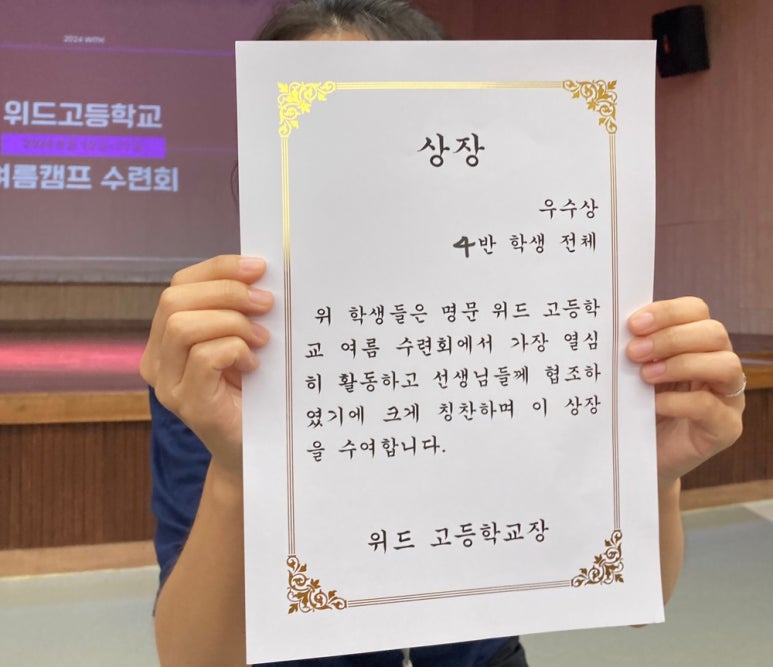 2024 WITH
위드고등학교
여름캠프 수련회
상장
우수상
4반 학생 전체
위 학생들은 명문 위드 고등학
교 여름 수련회에서 가장 열심
히 활동하고 선생님들께 협조하
였기에 크게 칭찬하며 이 상장
을 수여합니다.
위드 고등학교장